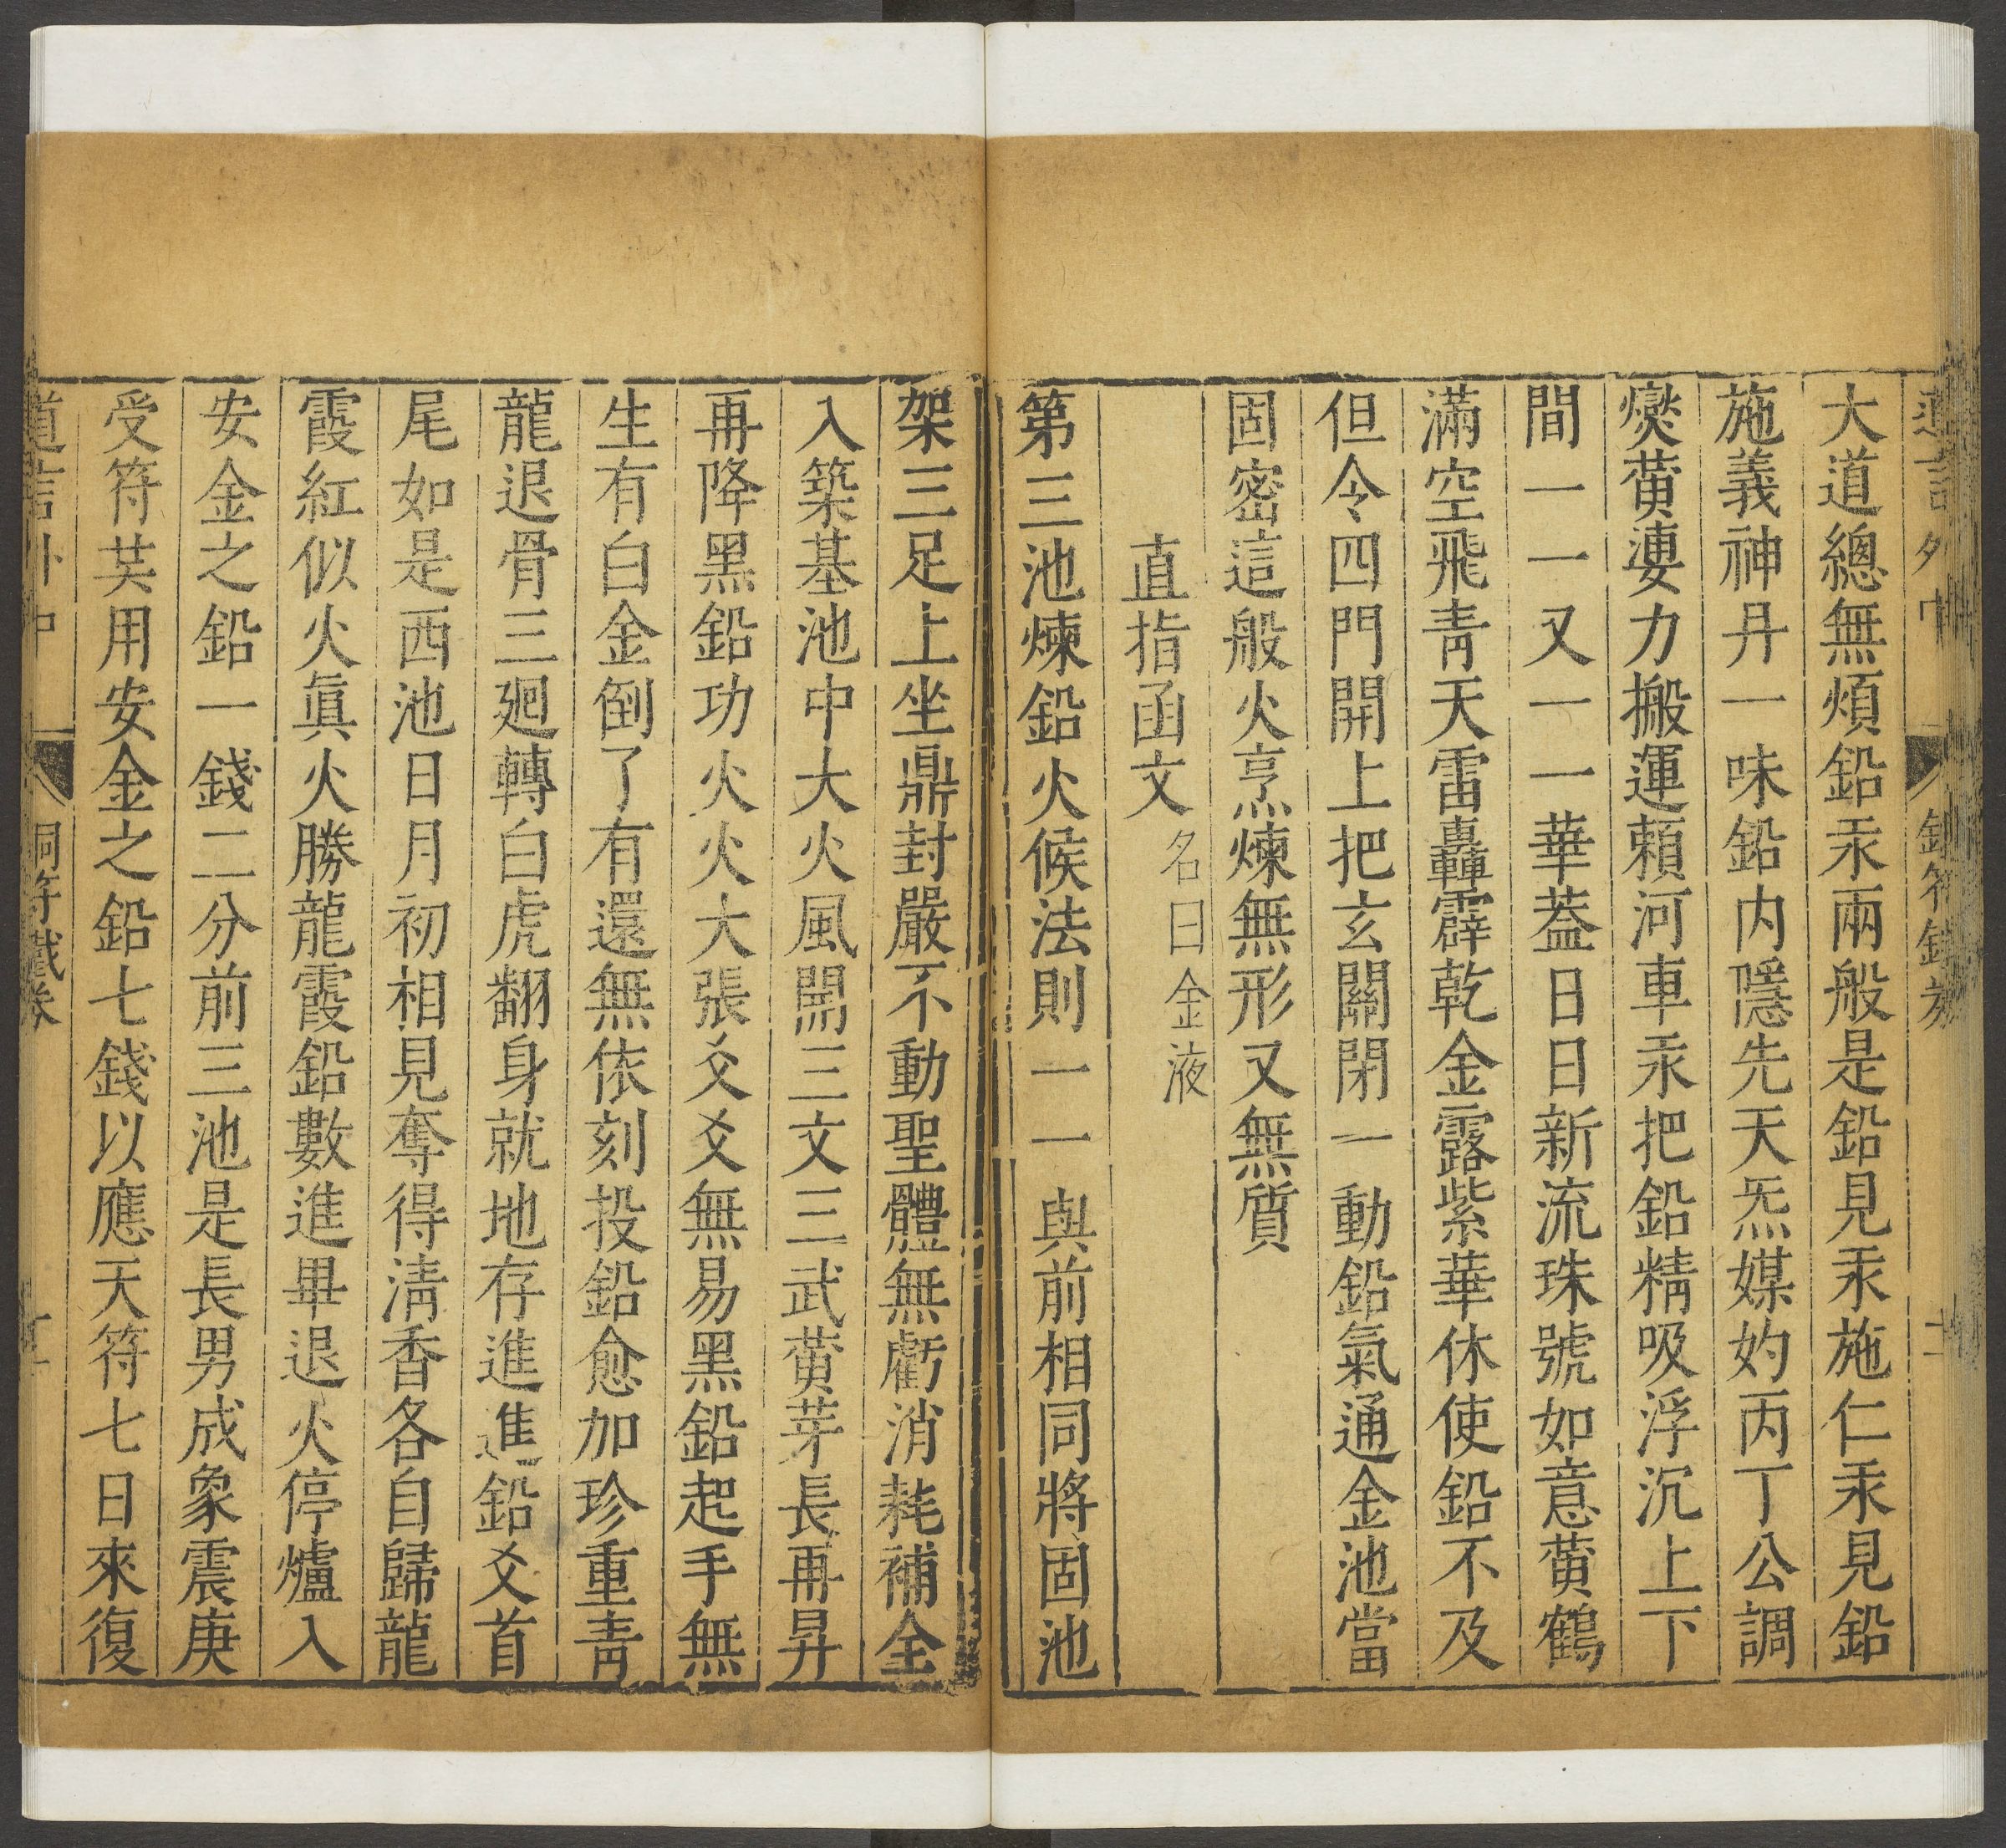 大道總無煩鉛汞兩般是鉛見汞施仁汞見鉛
施義神丹一味鉛内隱先天炁媒妁丙丁公調
爕黄婆力搬運頼河車汞把鉛精吸浮沉上下
間一一又一一華葢日日新流珠號如意黄鶴
滿空飛青天雷轟霹乾金露紫華休使鉛不及
但令四門開上把玄關閉一動鉛氣通金池當
固密這般火烹煉無形又無質
直指函文名曰金液
第三池煉鉛火候法則一一與前相同將固池
架三足上坐鼎封嚴不動聖體無虧消耗補全
入築基池中大火風開三文三武黄芽長再昇
再降黑鉛功火火大張爻爻無易黑鉛起手無
生有白金倒了有還無依刻投鉛愈加珍重青
龍退骨三廻轉白虎翻身就地存進進鉛爻首
尾如是西池日月初相見奪得清香各自歸龍
霞紅似火眞火勝龍霞鉛數進畢退火停爐入
安金之鉛一錢二分前三池是長男成象震庚
受符芖用安金之鉛七錢以應天符七日來復